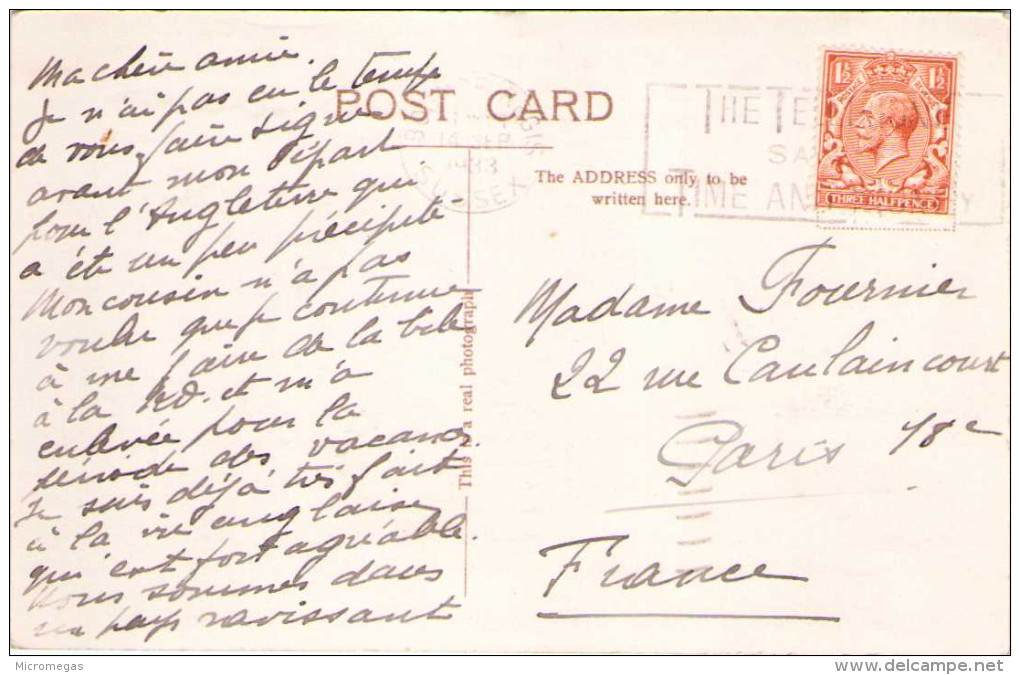 Ma chère amie.
Je n'ai pas eu le temps
de vous faire signe
avant mon départ
pour l'Angleterre qui
a été un peu précipité
Mon cousin n'a pas
voulu que je continue
à me faire de la bile
à la et m'a
enlevée pour la
période des vacances.
Je suis déjà très fait
à la vie anglaise
qui est fort agréable.
Nous sommes dans
un pays ravissant
POST CARD
The ADDRESS only to be
written here.
This is a real photograph
GIS
SEP
SUSSEX
THE TE
SA
TIME AN Y
1½ 1½
POSTAGE REVENUE
THREE HALFPENCE
Madame Fournier
22 rue Caulaincourt
Paris 18e
France
Micromegas
delcampe.net